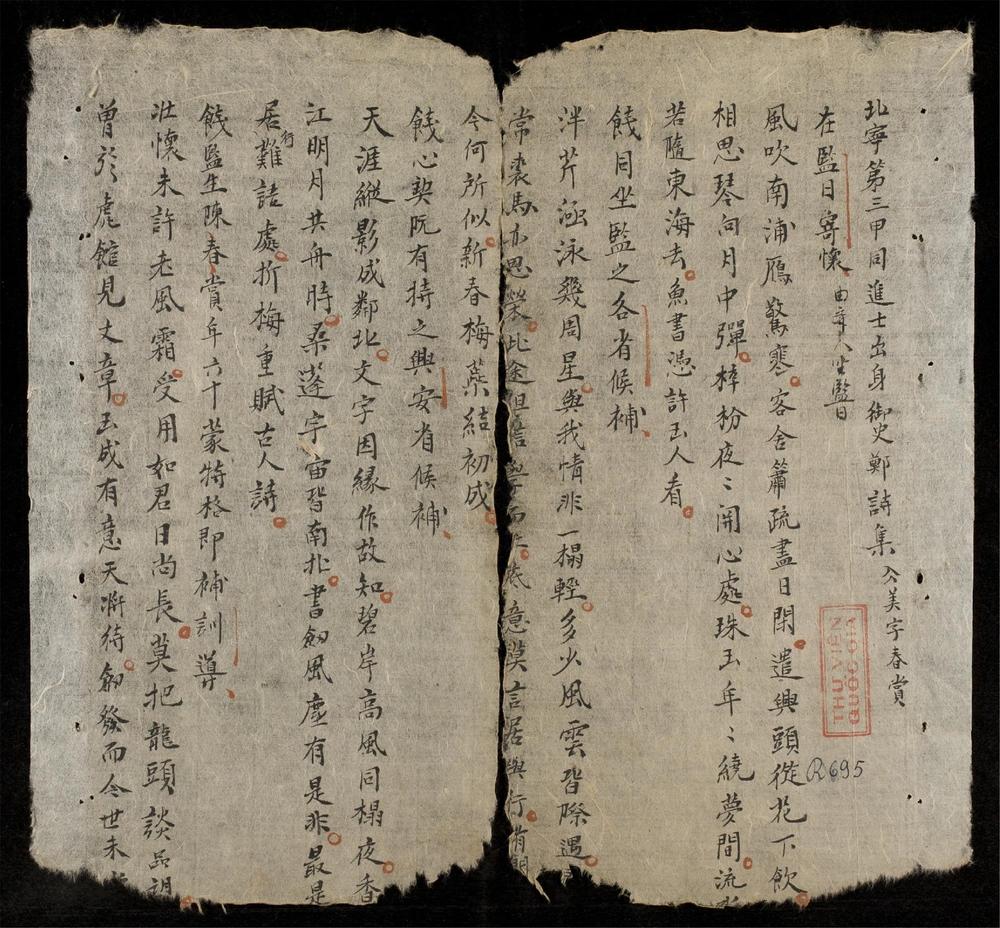 北寧第三甲同進士出身御史鄭詩集 公美字春賞
在監日寄懷
風吹南浦鴈驚寒客舍簫疏盡日閑遣興頭從花下飲
相思琴向月中彈梓枌夜〻開心處珠玉年〻繞夢間流
若隨東海去魚書憑許玉人看
餞同坐監之各省候補
泮芹涵泳幾周星與我情非一榻輕多少風雲皆際遇
常裘馬亦思榮此途但意莫言居與行
今何所似新春梅蘂結初成
餞心契阮有持之興安省候補
天涯縱影成鄰北文字因緣作故知碧岸高風同榻夜香
江明月共舟時桑蓬宇宙皆南北書劍風塵有是非最是
居行難詰處折梅重賦古人詩
餞監生陳春賞年六十蒙特格即補訓導
壯懷未許老風霜受用如君日尚長莫把龍頭談品
曽於虎館見文章玉成有意天將待劍發而今世未
THƯ VIỆN
QUỐC GIA
R695